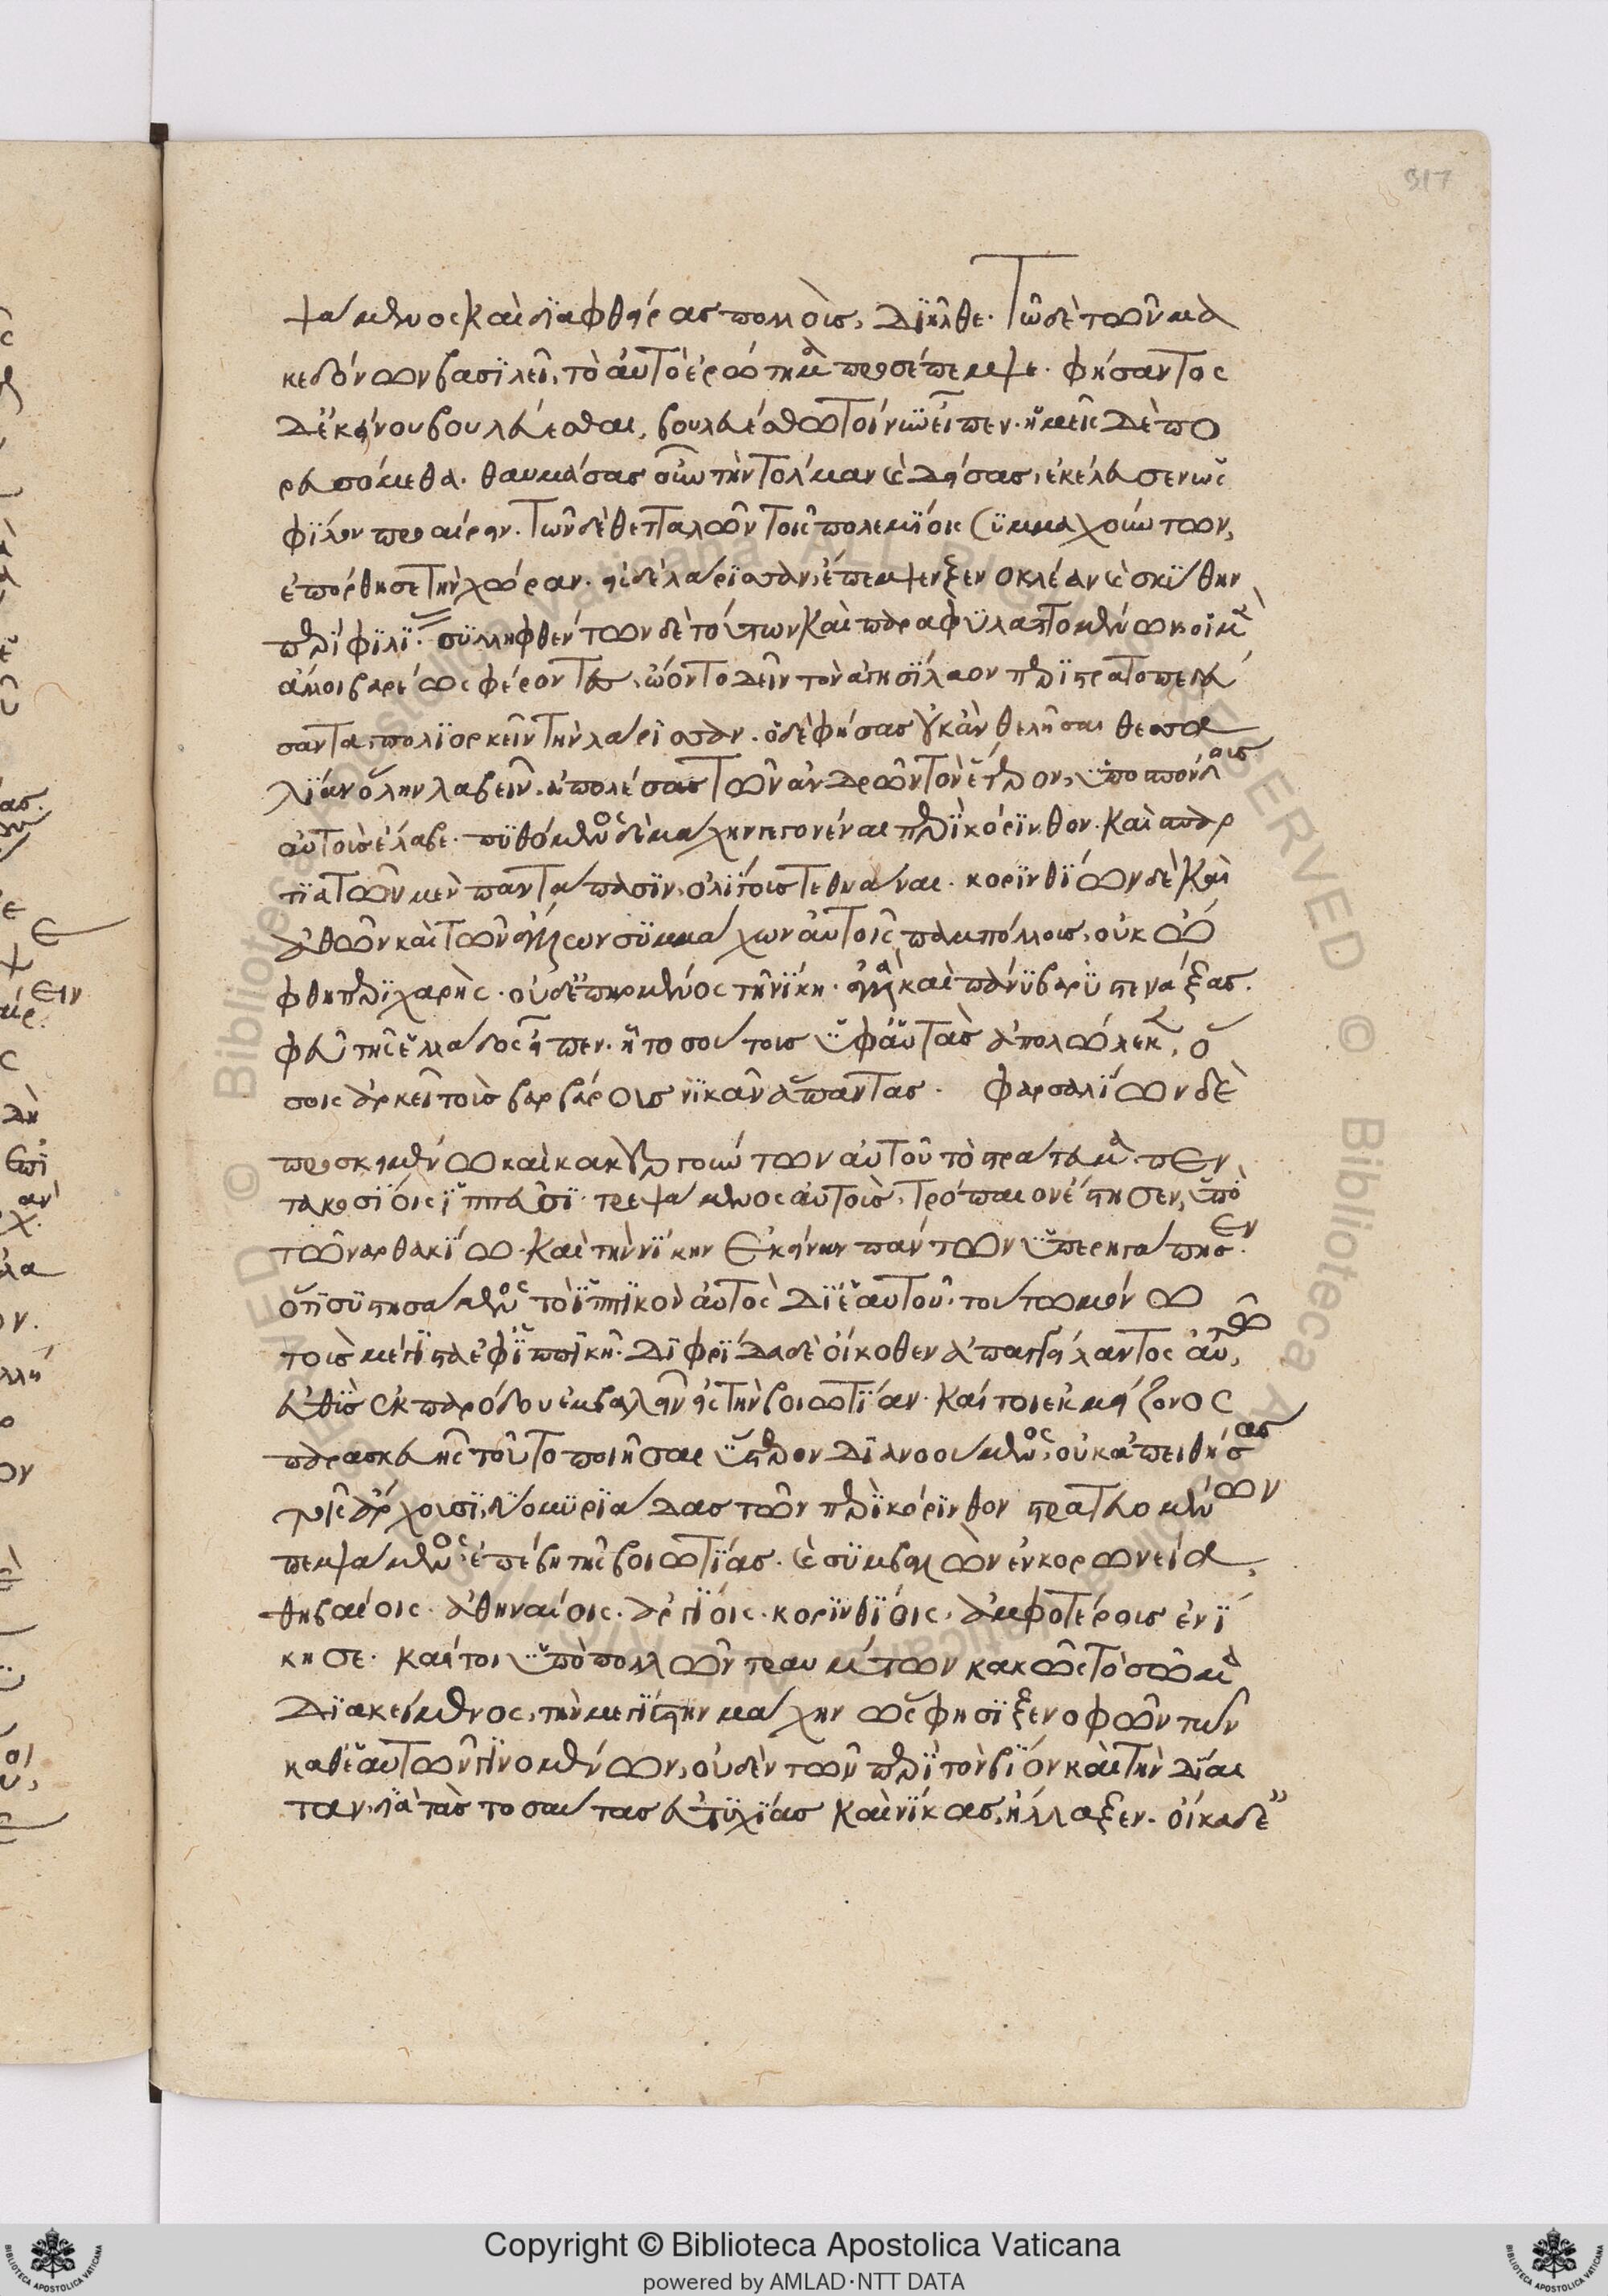 317
ψάμενος καὶ διαφθείρας πολλοὺς, διῆλθε. Τῶ δὲ τῶν μα
κεδόνων βασιλεῖ, τὸ αὐτὸ ἐρώτημα προσέπεμψε. φήσαντος
δ' ἐκείνου βουλεύεσθαι, βουλευέσθω τοίνυν εἶπεν. ἡμεῖς δὲ πο
ρευσόμεθα. θαυμάσας οὖν τὴν τόλμαν καὶ δείσας, ἐκέλευσεν ὡς
φίλον προαίρειν. Τῶν δὲ θετταλῶν τοῖς πολεμίοις συμμαχούντων,
ἐπόρθησε τὴν χώραν. εἰς δὲ λάρισσαν, ἔπεμψεν ξενοκλέαν καὶ σκύθην
περὶ φιλί. συλληφθέντων δὲ τούτων καὶ παραφυλαττομένων, οἱ μὲν
ἄλλοι βαρέως φέροντες, ὤοντο δεῖν τὸν ἀγησίλαον περιστρατοπεδεύ
σαντα, πολιορκεῖν τὴν λάρισσαν. ὁ δὲ φήσας οὐκ ἂν θελῆσαι θεσσα
λίαν ὅλην λαβεῖν, ἀπολέσας τῶν ἀνδρῶν τὸν ἕτερον, ὑποσπόνδους
αὐτοὺς ἔλαβε. πυθόμενος δὲ μάχην γεγονέναι περὶ κόρινθον. καὶ σπαρ
τιατῶν μὲν παντάπασιν, ὀλίγους τεθνάναι. κορινθίων δὲ καὶ
ἀθηναίων καὶ τῶν ἄλλων συμμάχων αὐτοῖς παμπόλλους, οὐκ ὤ
φθη περιχαρὴς. οὐδ' ἐπηρμένος τῆ νίκη. ἀλλὰ καὶ πάνυ βαρὺ στενάξας.
φεῦ τῆς ἑλλάδος εἶπεν. ἣ τοσούτους ὑφ' αὑτῆς ἀπολώλεκεν, ὅ
σοις ἀρκεῖ τοὺς βαρβάρους νικᾶν ἅπαντας. φαρσαλίων δὲ
προσκειμένων καὶ κακουργούντων αὐτοῦ τὸ στράτευμα. πεν
τακοσίοις ἱππεῦσι. τρεψάμενος αὐτοὺς, τρόπαιον ἔστησεν, ὑπὸ
τῶ ναρθακίω. καὶ τὴν νίκην ἐκείνην πάντων ὑπερηγάπησεν.
ὅτι συστησάμενος τὸ ἱππικὸν αὐτὸς δι' ἑαυτοῦ. τούτω μόνω
τοὺς μέγιστα ἐφ' ἱππικῆ. διφρίδα δὲ οἴκοθεν ἀπαγγείλαντος αὐτῶ,
εὐθὺς ἐκ παρόδου ἐμβαλεῖν εἰς τὴν βοιωτίαν. καίτοι ἐκ μείζονος
παρασκευῆς τοῦτο ποιῆσαι ὕστερον διανοούμενος, οὐκ ἀπειθήσας
τοῖς ἄρχουσι, δύο μυριάδας τῶν περὶ κόρινθον στρατευομένων
πεμψάμενος, ἐπέβη τῆς βοιωτίας. καὶ συμβαλὼν ἐν κορωνεία,
θηβαίοις. ἀθηναίοις. ἀργείοις. κορινθίοις. ἀμφοτέρους ἐνί
κησε. καίτοι ὑπὸ πολλῶν τραυμάτων κακῶς τὸ σῶμα
διακείμενος, τὴν μεγίστην μάχην ὥς φησι ξενοφῶν τῶν
καθ' ἑαυτὸν γινομένων, οὐδὲν τῶν περὶ τὸν βίον καὶ τὴν δίαι
ταν, διὰ τὰς τοσαύτας εὐτυχίας καὶ νίκας, ἤλλαξεν. οἴκαδε
Copyright © Biblioteca Apostolica Vaticana
powered by AMLAD·NTT DATA